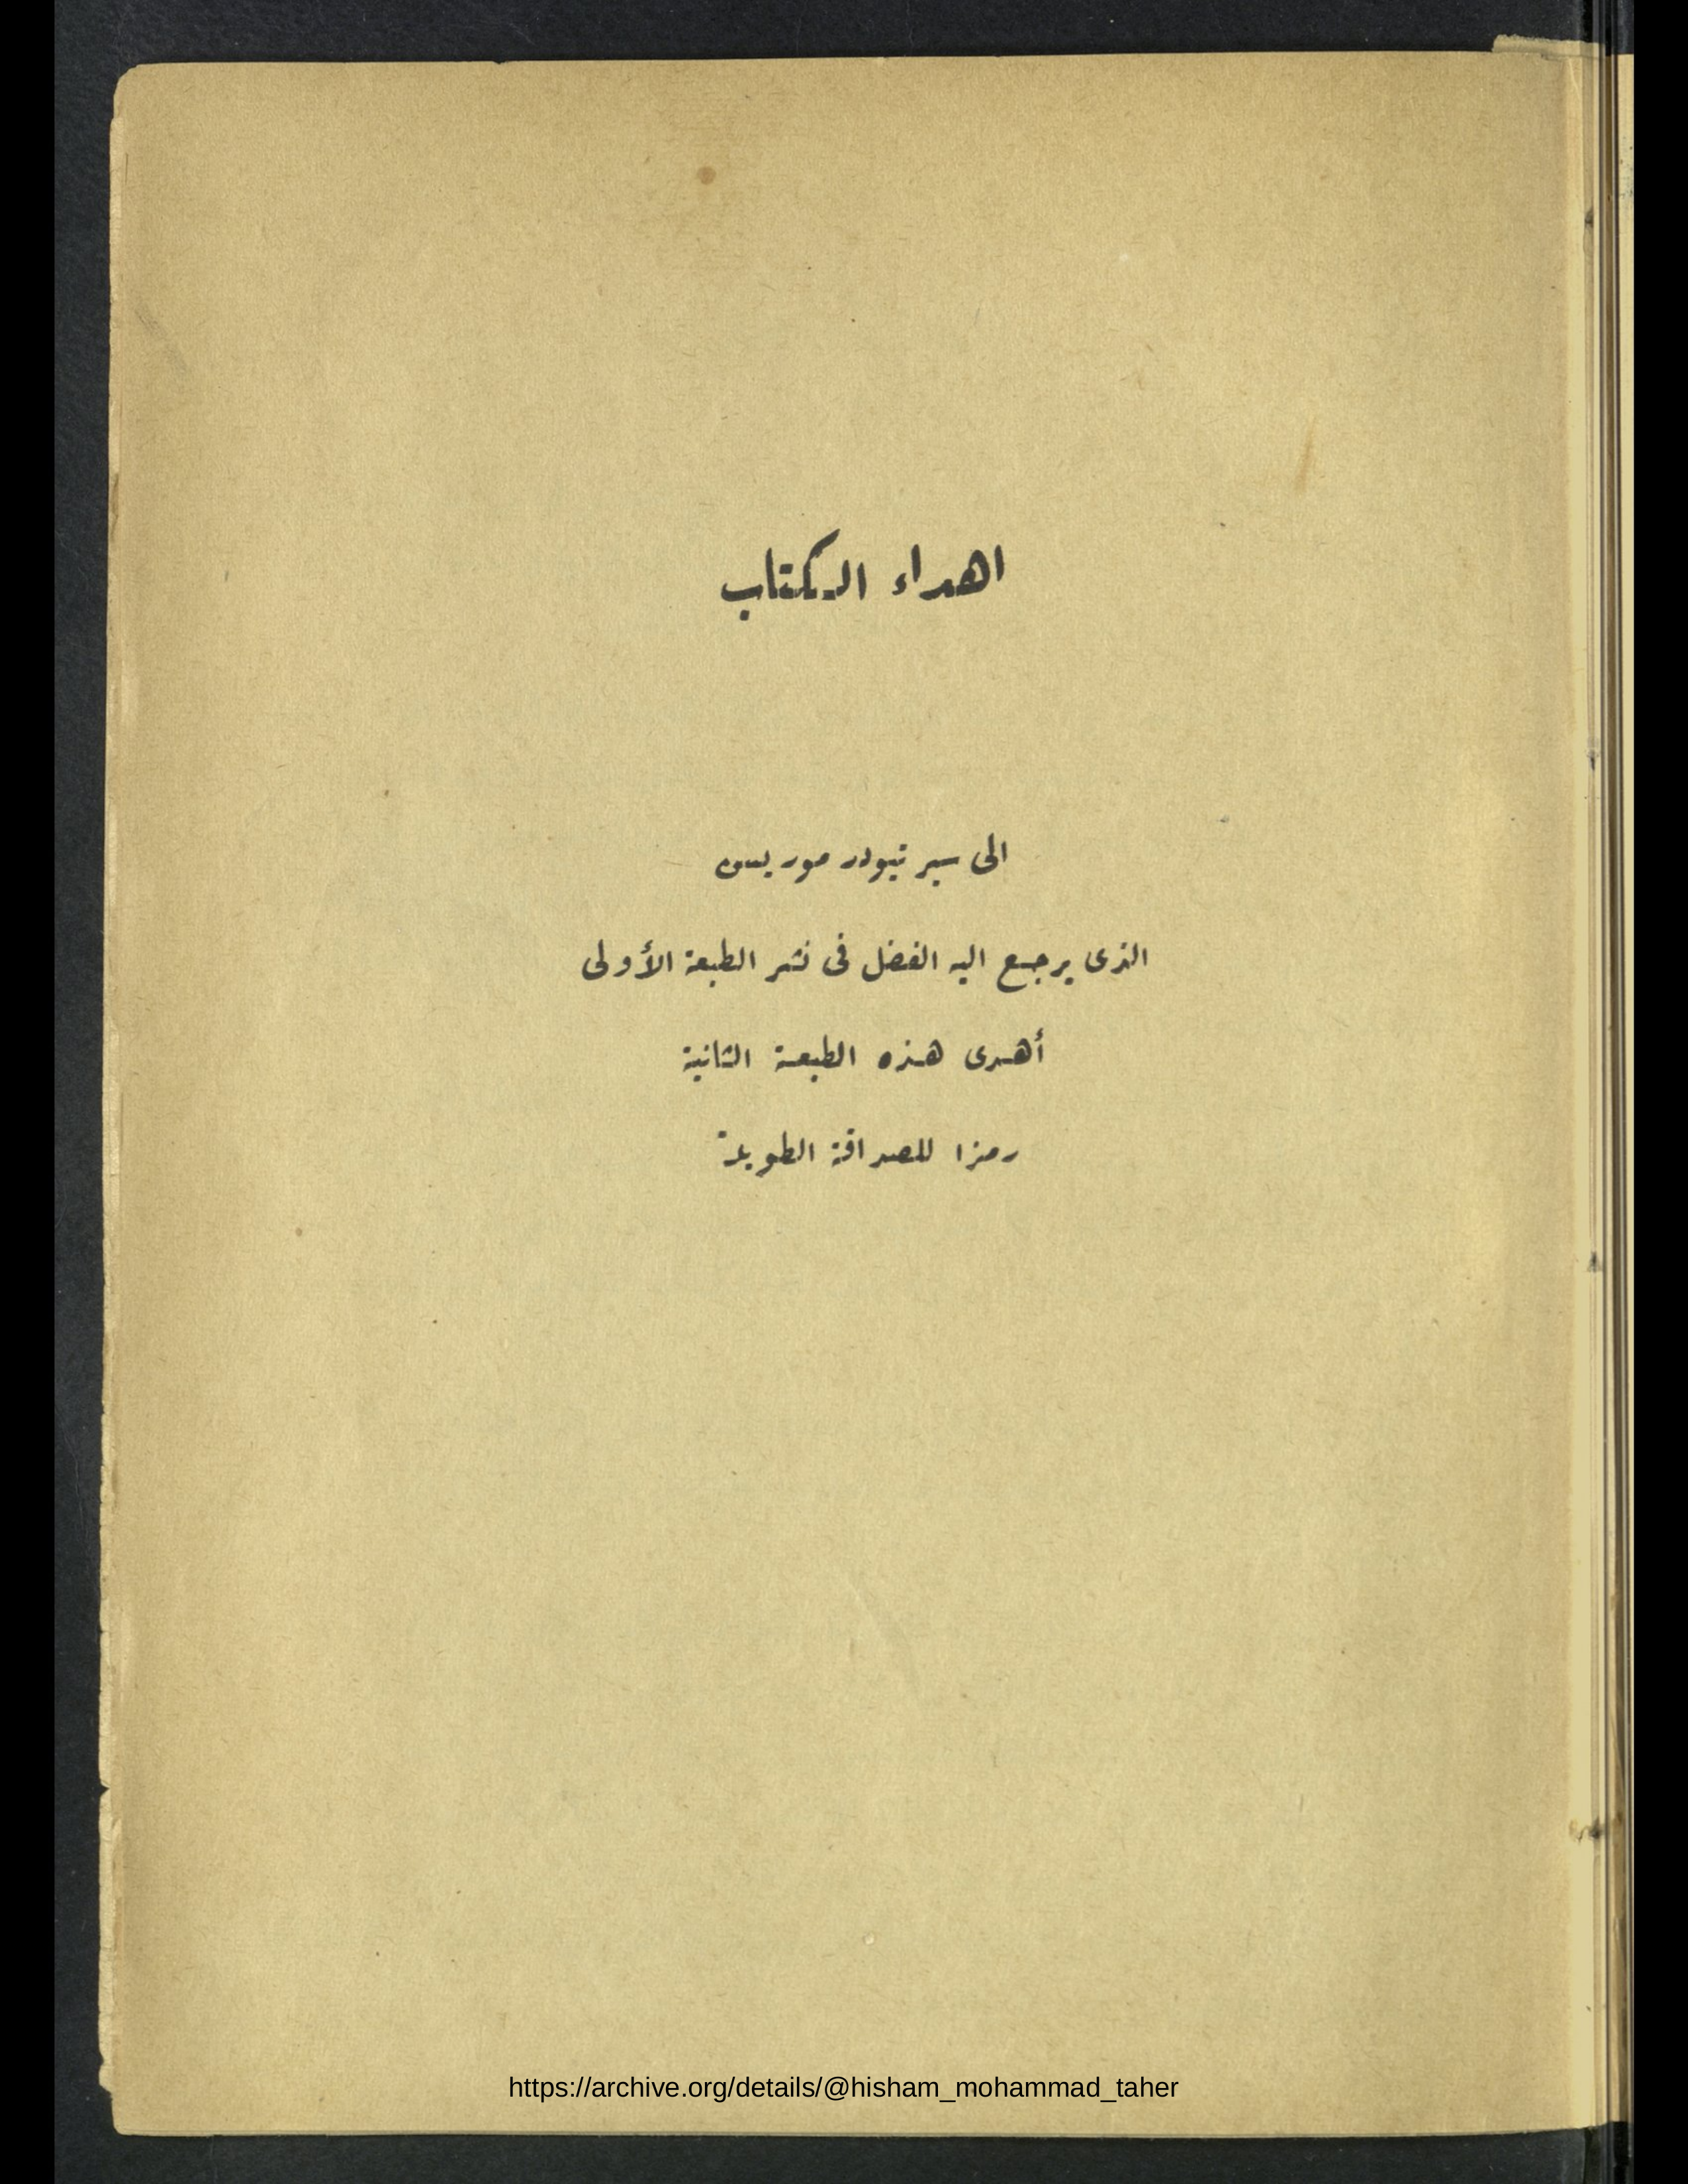 اهداء الكتاب
الى سير تيودر موريسن
الذى يرجع اليه الفضل فى نشر الطبعة الأولى
أهدى هذه الطبعة الثانية
رمزا للصداقة الطويلة
https://archive.org/details/@hisham_mohammad_taher